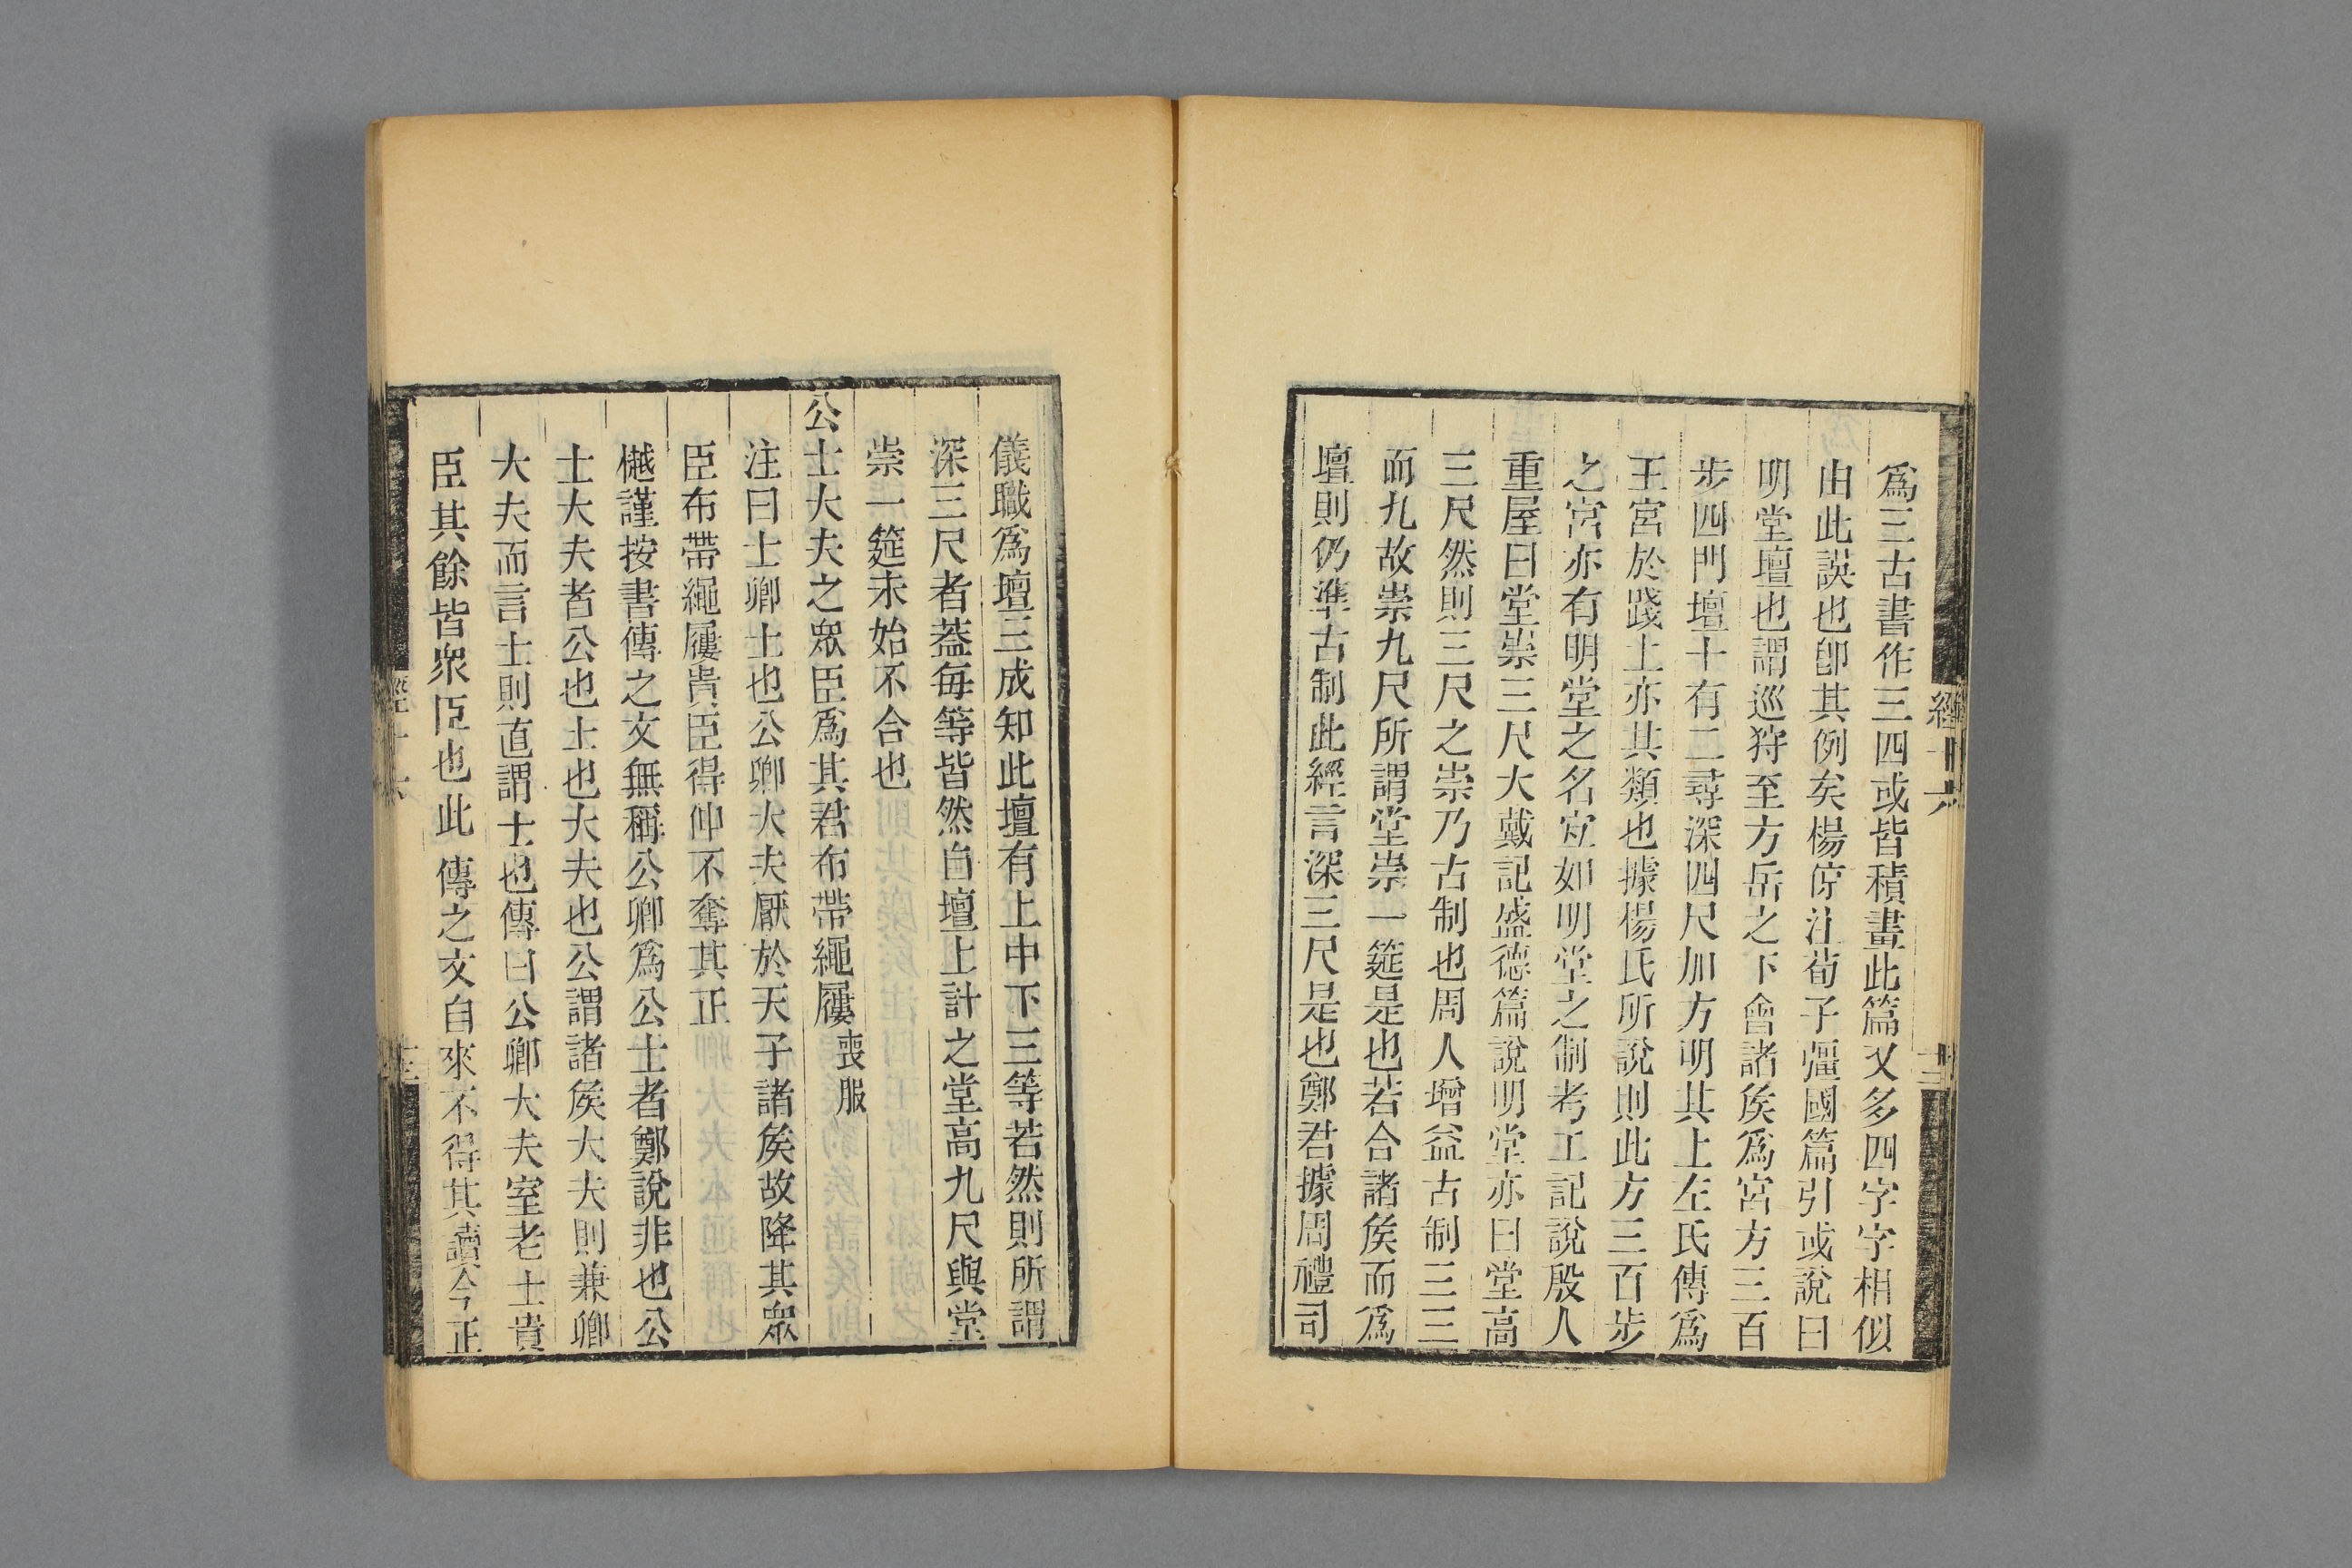 爲三古書作三四或皆積畫此篇又多四字字相似
由此誤也卽其例矣楊倞注荀子彊國篇引或說曰
明堂壇也謂巡狩至方岳之下會諸矦爲宮方三百
步四門壇十有二尋深四尺加方明其上左氏傳爲
王宮於踐土亦其類也據楊氏所說則此方三百步
之宮亦有明堂之名宐如明堂之制考工記說殷人
重屋曰堂崇三尺大戴記盛德篇說明堂亦曰堂高
三尺然則三尺之崇乃古制也周人增益古制三三
而九故崇九尺所謂堂崇一筵是也若合諸矦而爲
壇則仍準古制此經言深三尺是也鄭君據周禮司
經十六
儀職爲壇三成知此壇有上中下三等若然則所謂
深三尺者葢每等皆然自壇上計之堂高九尺與堂
崇一筵未始不合也
公士大夫之眾臣爲其君布帶繩屨喪服
注曰士卿士也公卿大夫厭於天子諸矦故降其眾
臣布帶繩屨貴臣得伸不奪其正
樾謹按書傳之文無稱公卿爲公士者鄭說非也公
士大夫者公也士也大夫也公謂諸矦大夫則兼卿
大夫而言士則直謂士也傳曰公卿大夫室老士貴
臣其餘皆衆臣也此傳之文自來不得其讀今正